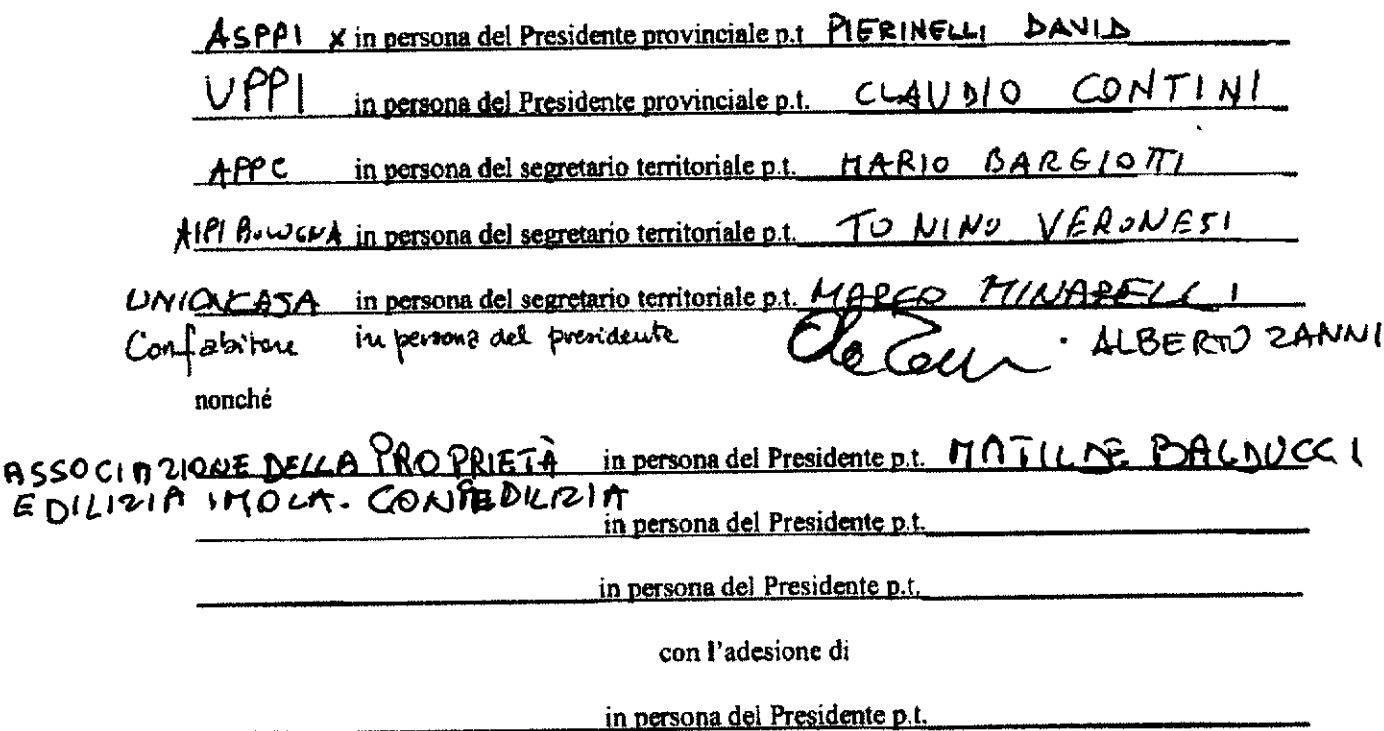 ASPPI x in persona del Presidente provinciale p.t PIERINELLI DAVID
UPPI in persona del Presidente provinciale p.t. CLAUDIO CONTINI
APPC in persona del segretario territoriale p.t. MARIO BARGIOTTI
AIPI BOLOGNA in persona del segretario territoriale p.t. TONINO VERONESI
UNIONCASA in persona del segretario territoriale p.t. MARCO MINARELLI
Confabitare in persona del presidente ALBERTO ZANNI
nonché
ASSOCIAZIONE DELLA PROPRIETÀ in persona del Presidente p.t. MATILDE BALDUCCI
EDILIZIA IMOLA. CONFEDILIZIA
in persona del Presidente p.t.
in persona del Presidente p.t.
con l'adesione di
in persona del Presidente p.t.